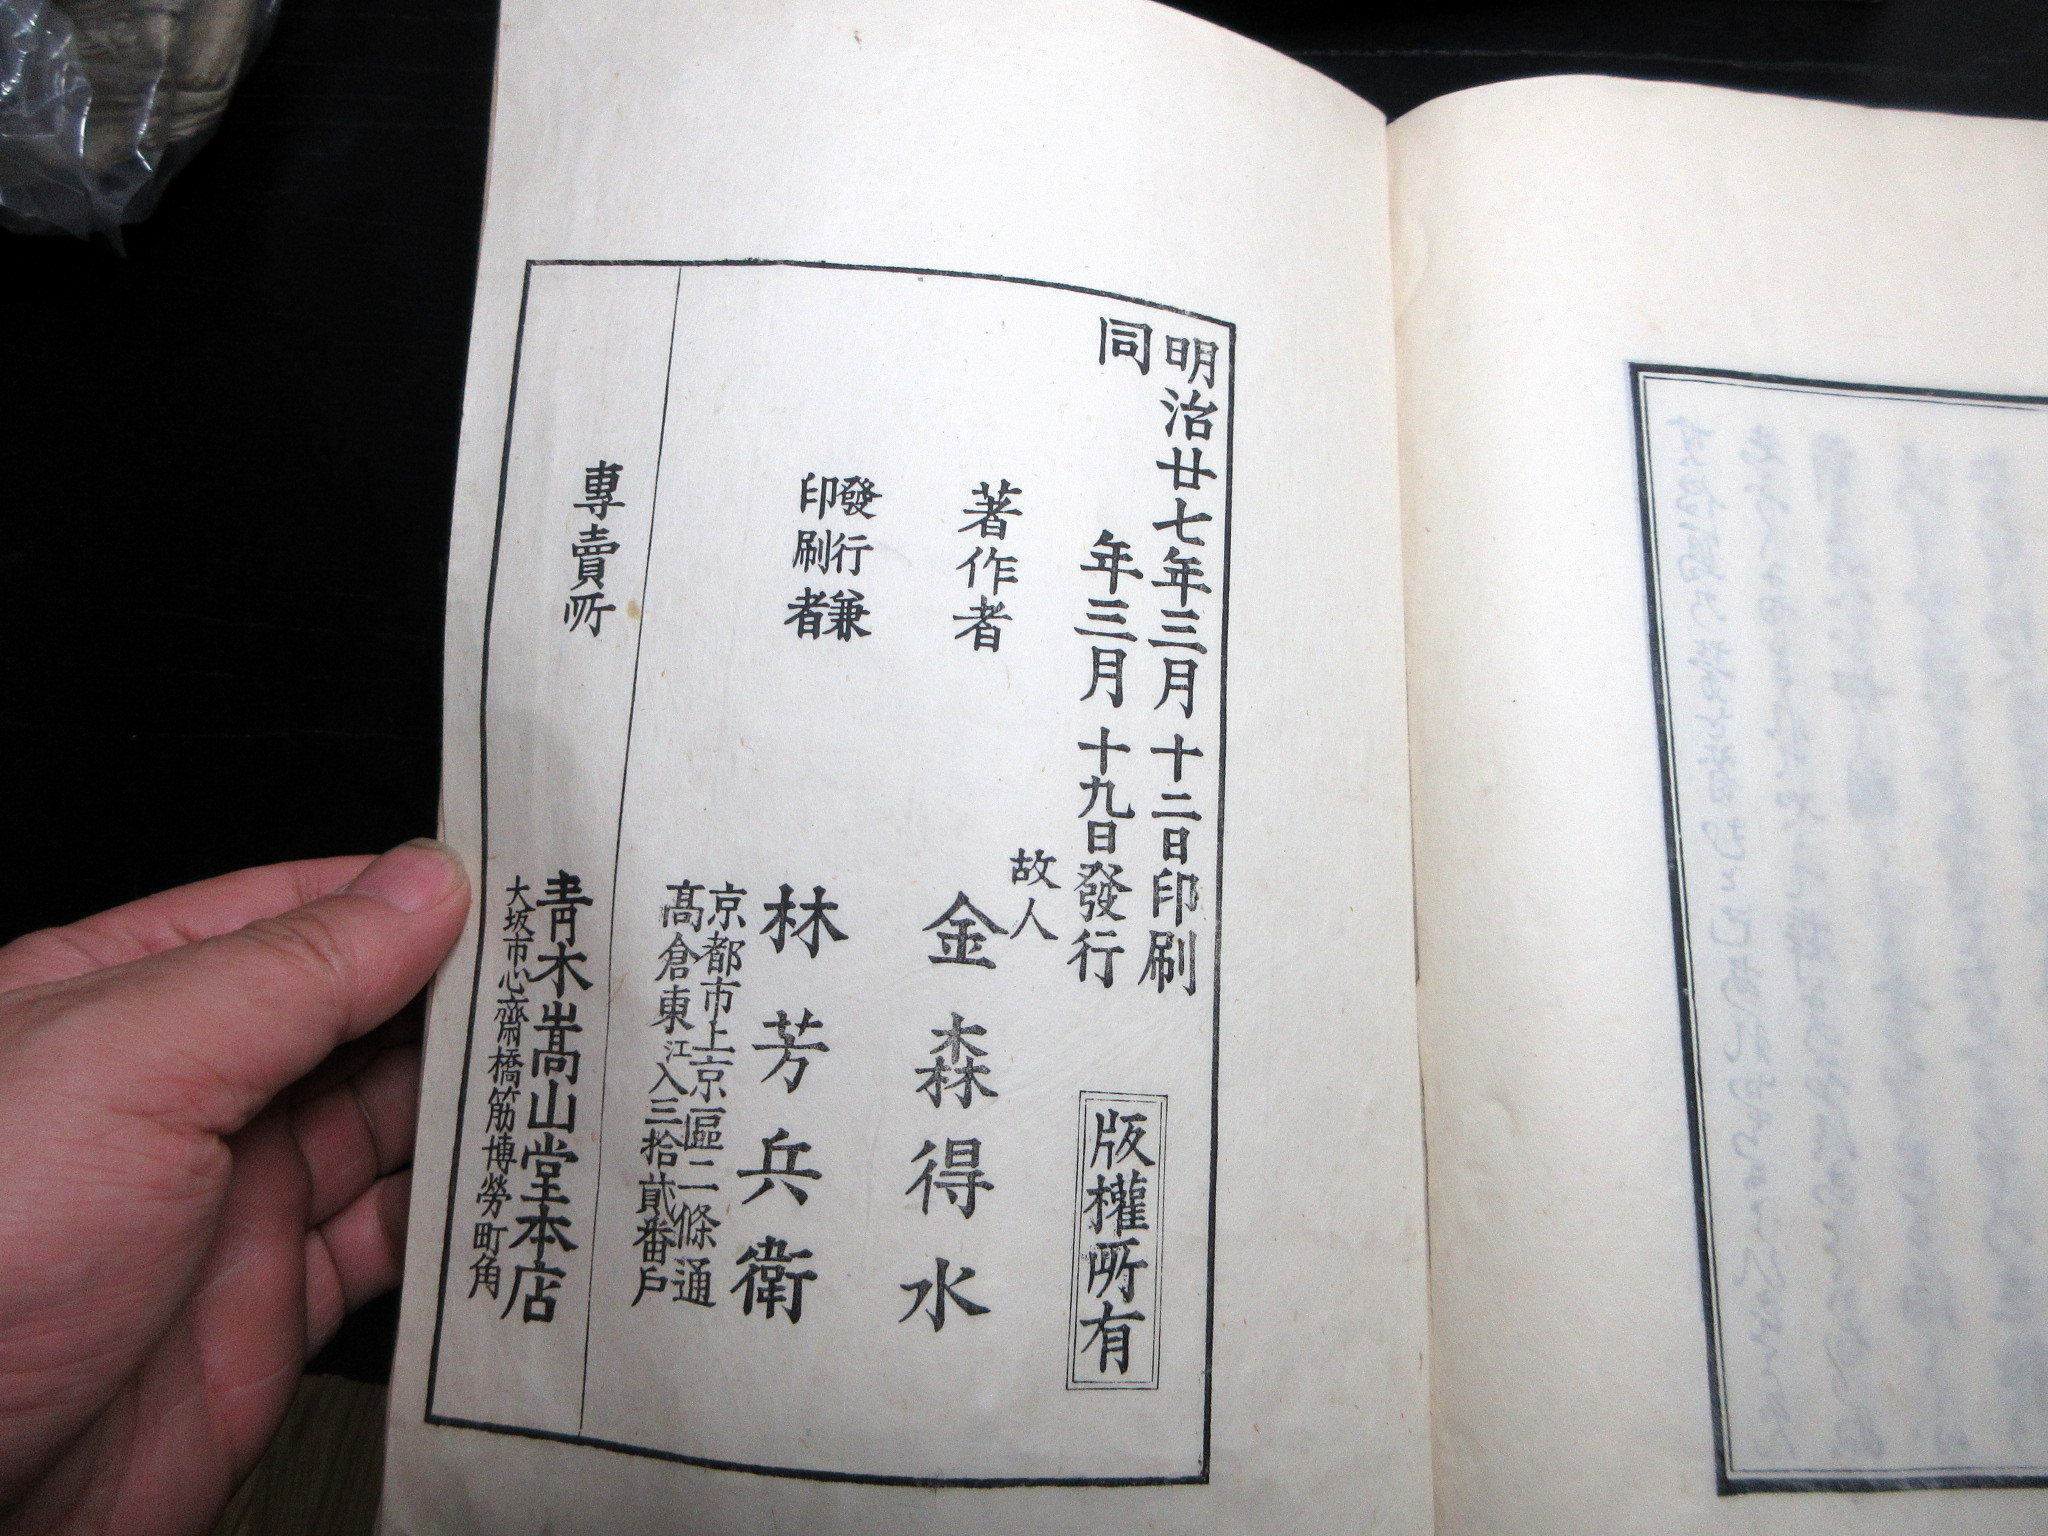 明治廿七年三月十二日印刷
同年三月十九日發行
版權所有
著作者
故人
金森得水
發行兼
印刷者
林芳兵衛
京都市上京區二條通
髙倉東江入三拾貳番戶
專賣所
靑木嵩山堂本店
大坂市心齋橋筋博勞町角